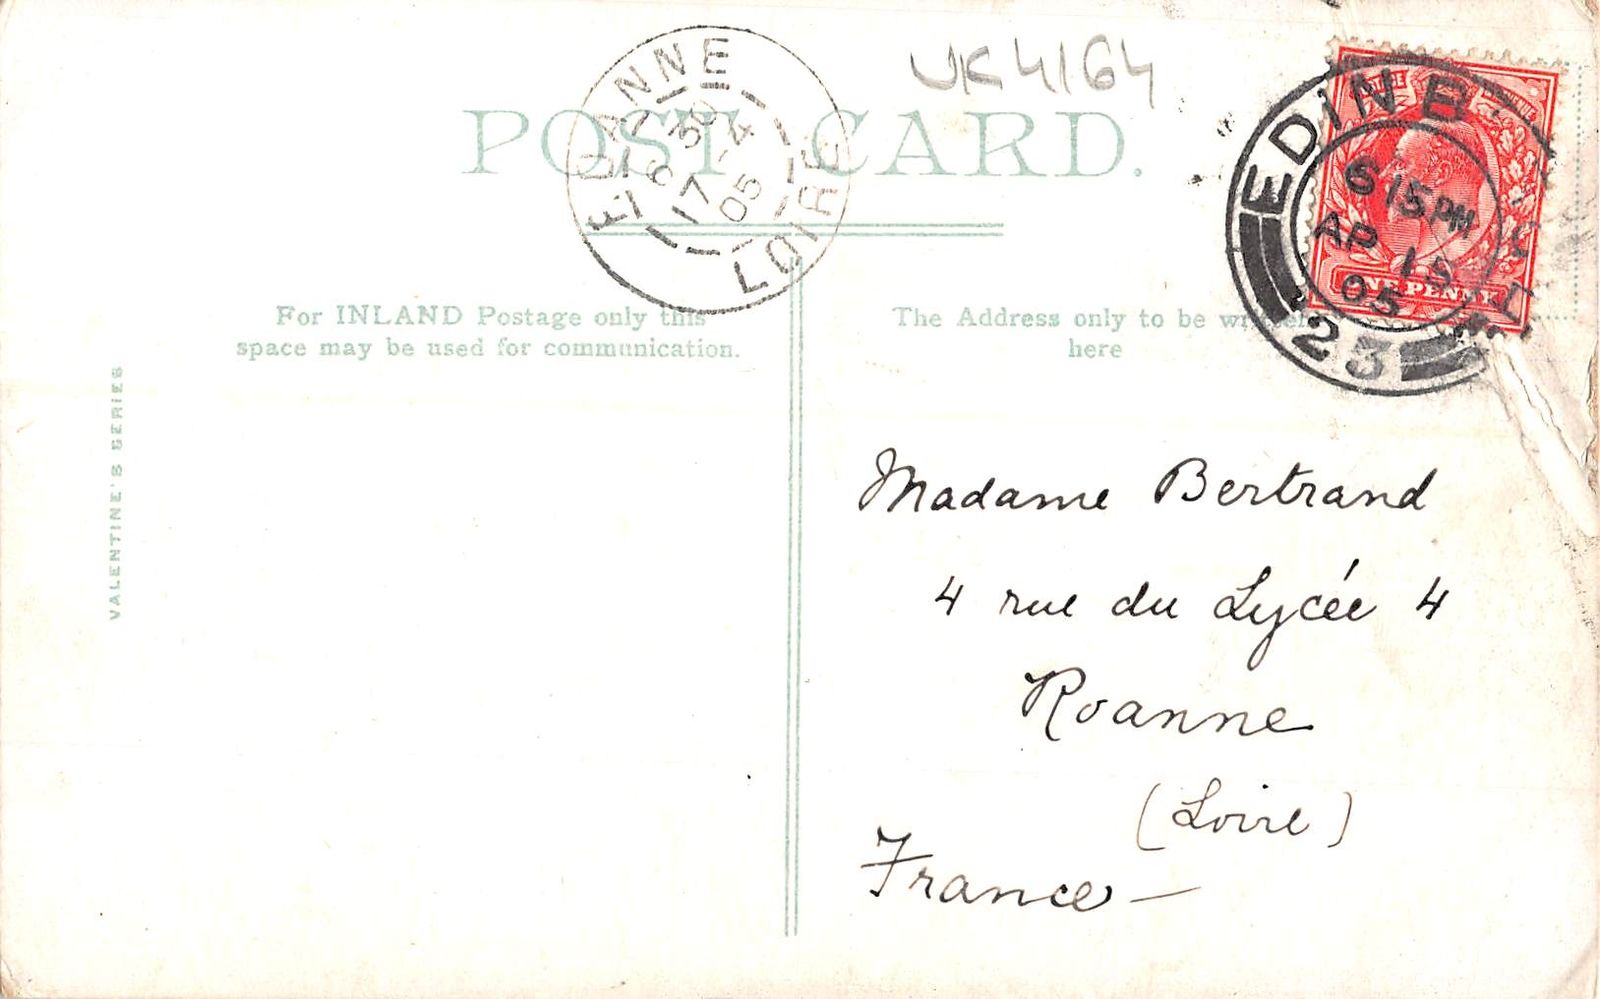 UK4164
POST CARD.
ROANNE
LOIRE
6 30
17-4
05
EDINB
6 15 PM
AP 15
05
23
ONE PENNY
For INLAND Postage only this
space may be used for communication.
The Address only to be written
here
VALENTINE'S SERIES
Madame Bertrand
4 rue du Lycée 4
Roanne
(Loire)
France —